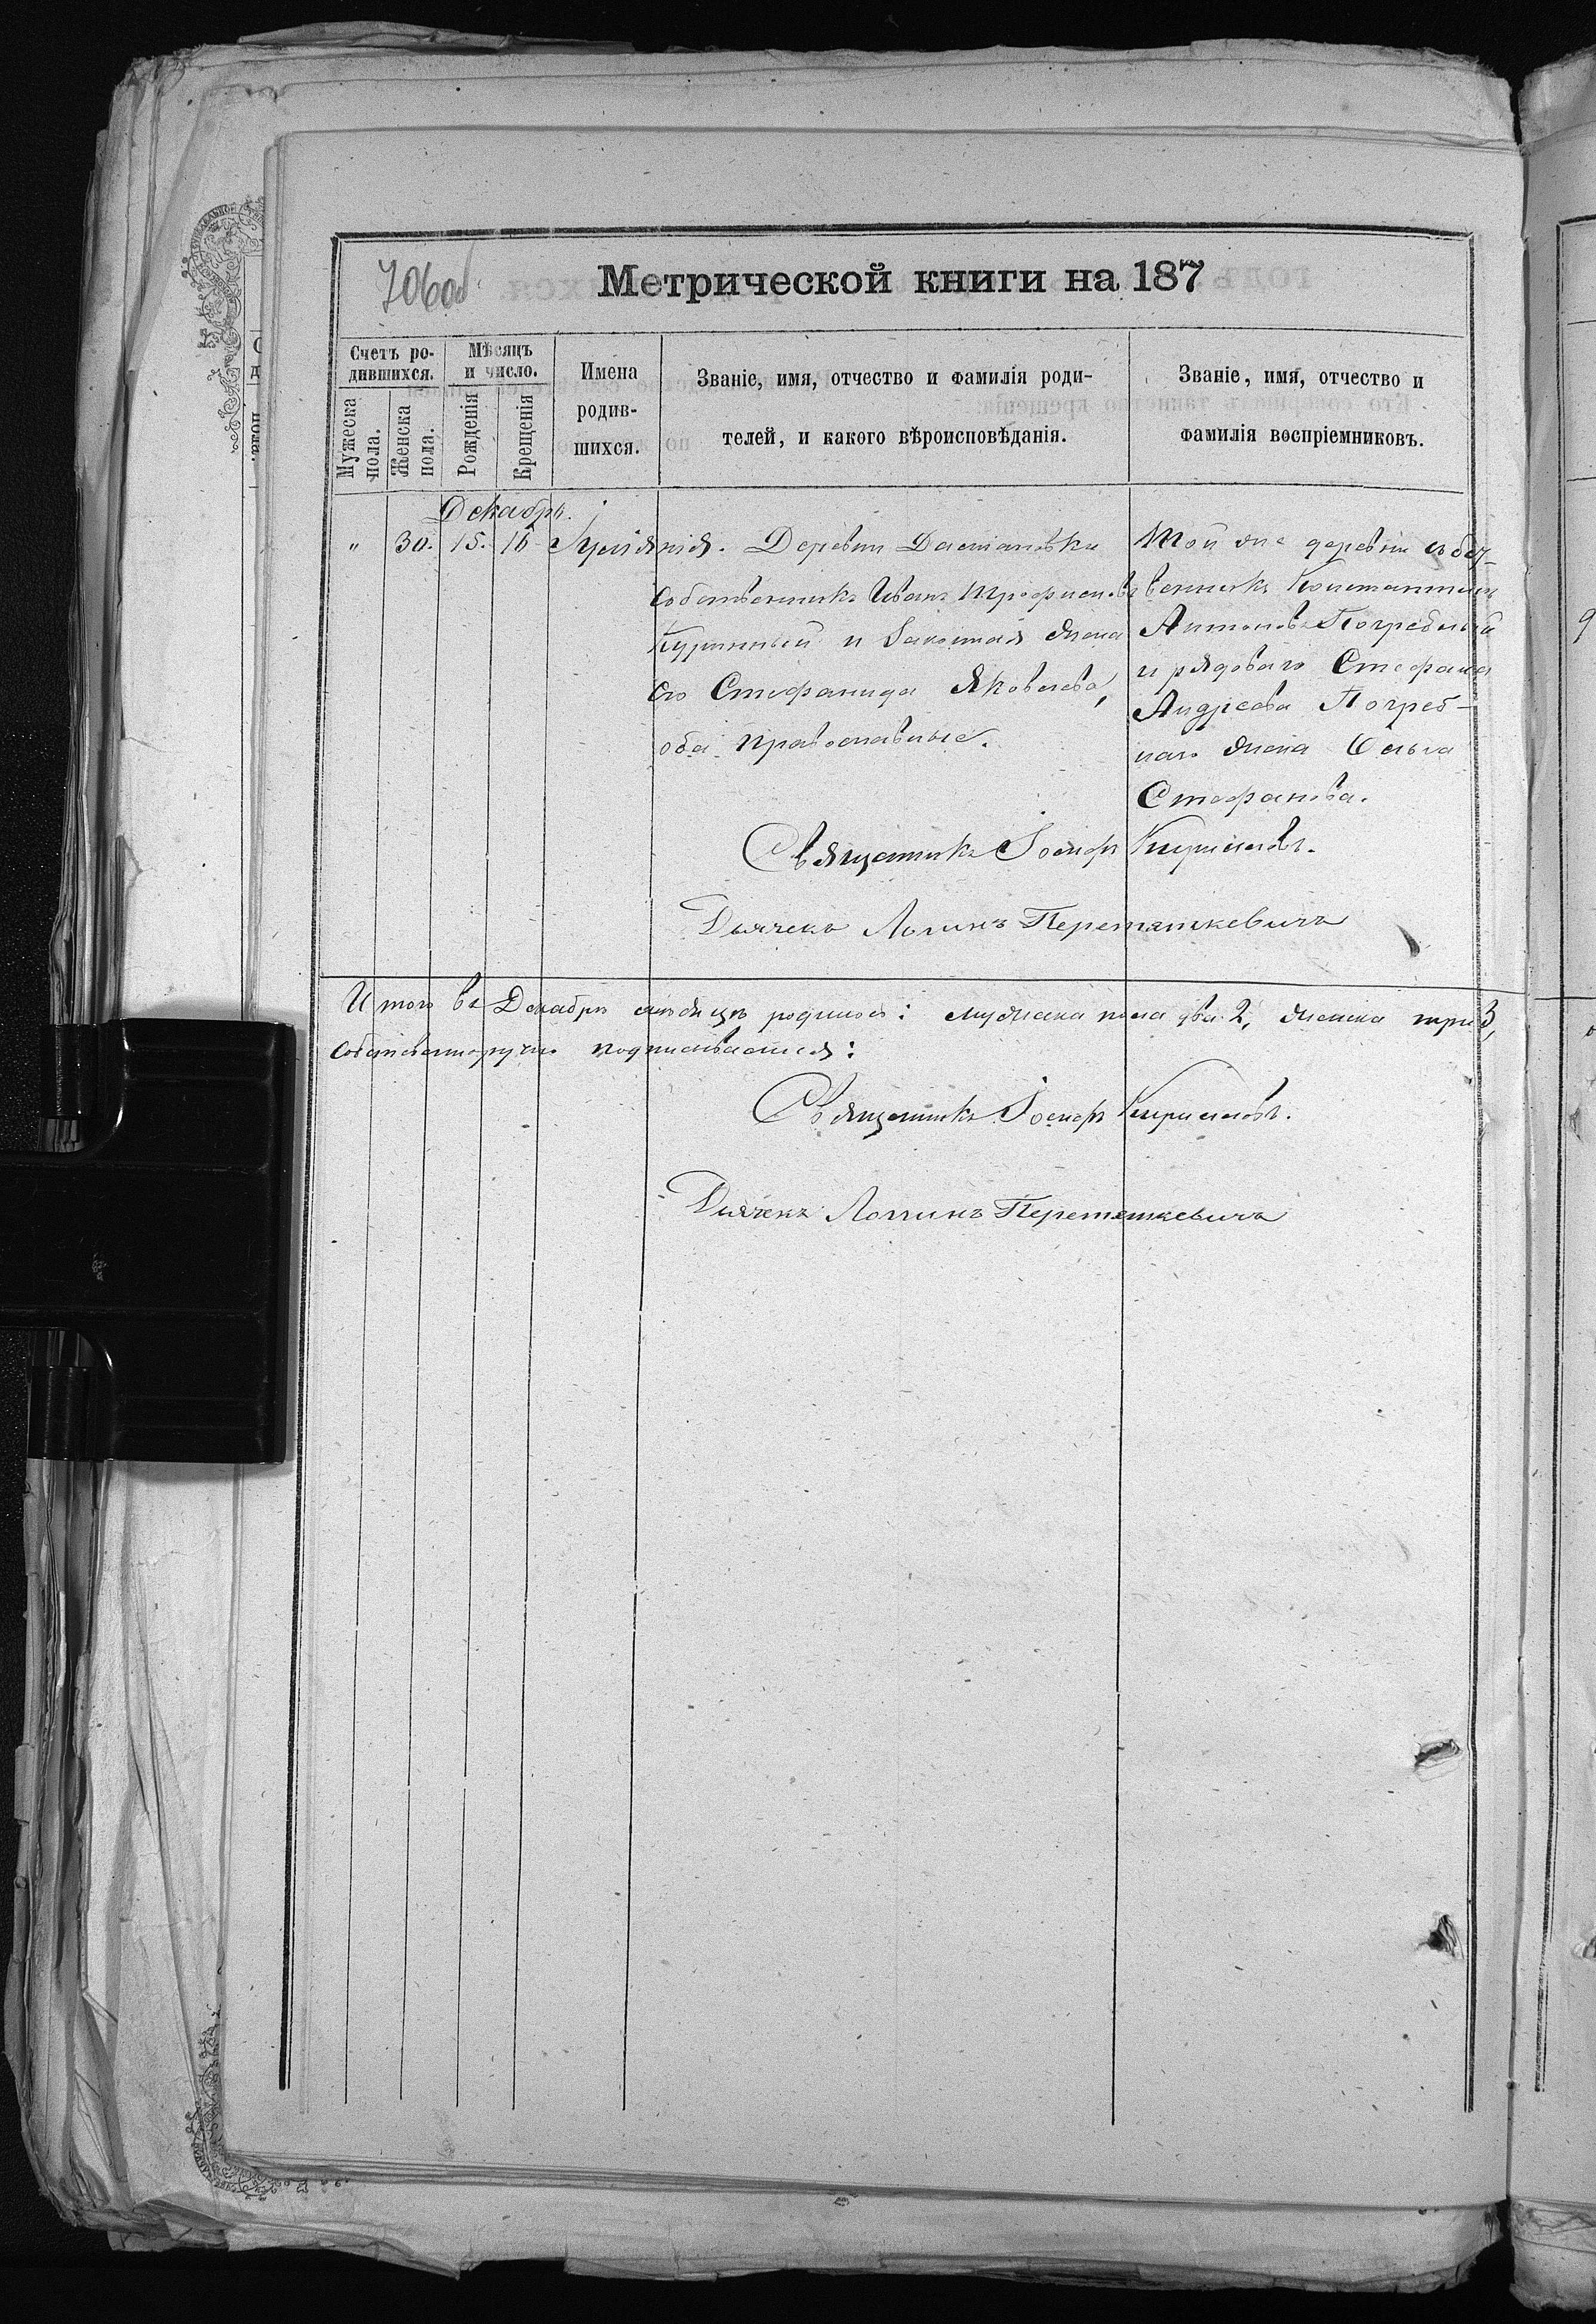 706об
Метрической книги на 187
Счетъ ро-
дившихся.
Мѣсяцъ
и число.
Мужеска
пола.
Женска
пола.
Рожденія
Крещенія
Имена
родив-
шихся.
Званіе, имя, отчество и фамилія роди-
телей, и какого вѣроисповѣданія.
Званіе, имя, отчество и
фамилія воспріемниковъ.
Декабрь.
" 30. 15. 16 Іуліянія. Деревни
собственникъ Иванъ Трофимовъ
и законная жена
его Стефанида Яковлева,
оба православные.
Той же деревни собст-
венникъ Константинъ
Антоновъ Погребный
и рядоваго Стефана
Андреева Погреб-
наго жена Ольга
Стефанова.
Священникъ Іосифъ Кирилловъ.
Дьячекъ Логинъ Перетяткевичъ
Итого въ Декабрѣ мѣсяцѣ родилось: мужеска пола два 2, женска три 3,
собственноручно подписываемся:
Священникъ Іосифъ Кирилловъ.
Дьячекъ Логгинъ Перетяткевичъ